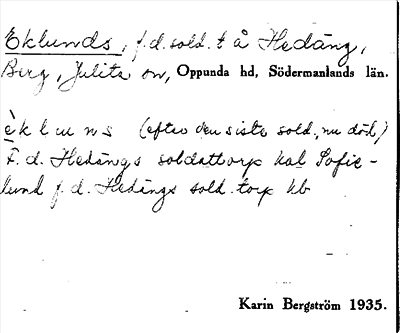 Eklunds, f.d. sold. t å Hedäng,
Berg, Julita sn, Oppunda hd, Södermanlands län.
èkluns (efter den siste sold., nu död)
F. d. Hedängs soldattorp kal Sofie-
lund f. d. Hedängs sold. torp hb
Karin Bergström 1935.